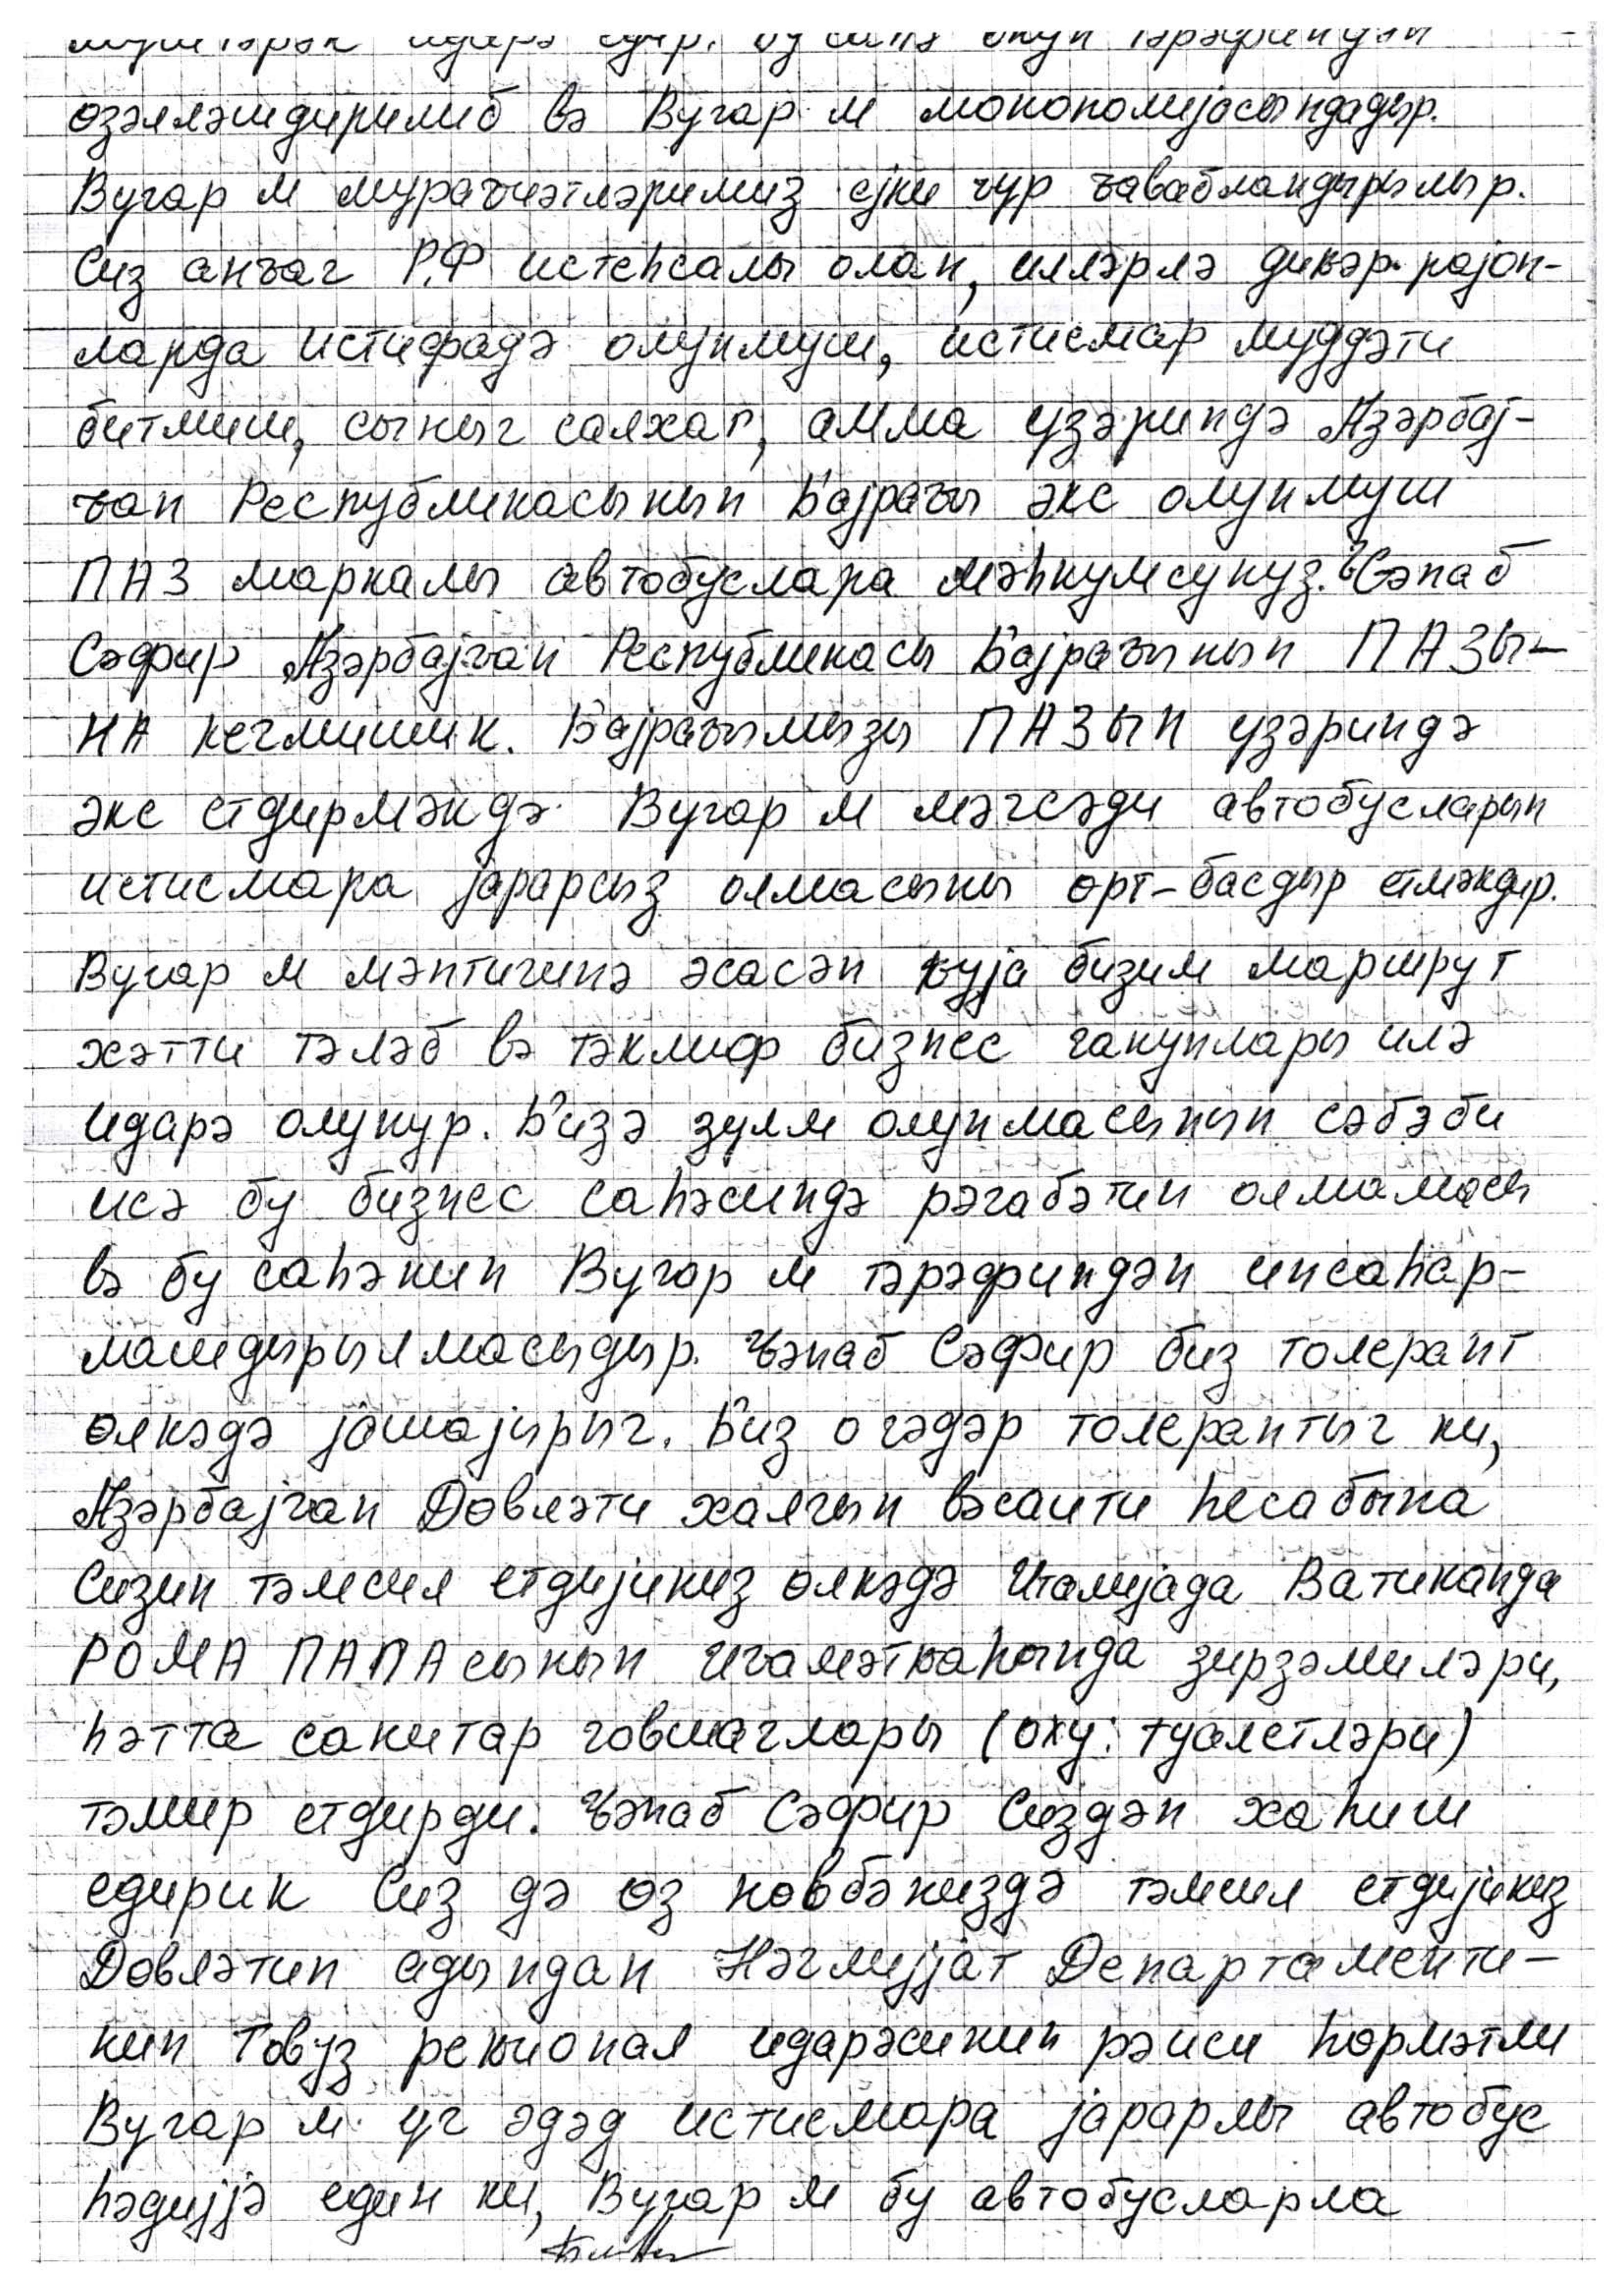 өзәлләшдирилиб вә Вугар м монополијасындадыр.
Вугар м мураҹиәтләримиз ејни ҹүр ҹавабландырылыр.
Сиз анҹаг Р.Ф истеһсалы олан, илләрлә дикәр рајон-
ларда истифадә олунмуш, истисмар муддәти
битмиш, сыныг салхаг, амма үзәриндә Азәрбај-
ҹан Республикасынын Бајрағы әкс олунмуш
ПАЗ маркалы автобуслара мәһкумсунуз. Ҹәнаб
Сәфир Азәрбајҹан Республикасы Бајрағынын ПАЗЫ-
НА кечмишик. Бајрағымызы ПАЗЫН үзәриндә
әкс етдирмәкдә Вугар м мәгсәди автобусларын
истисмара јарарсыз олмасыны өрт-басдыр етмәкдир.
Вугар м мәнтигинә әсасән ҝуја бизим маршрут
хәтти тәләб вә тәклиф бизнес ганунлары илә
идарә олунур. Бизә зүлм олунмасынын сәбәби
исә бу бизнес саһәсиндә рәгабәтин олмамасы
вә бу саһәнин Вугар м тәрәфиндән инсаһар-
лашдырылмасыдыр. Ҹәнаб Сәфир биз толерант
өлкәдә јашајырыг. Биз о гәдәр толерантыг ки,
Азәрбајҹан Дөвләти халгын вәсаити һесабына
Сизин тәмсил етдијиниз өлкәдә Италијада Ватиканда
РОМА ПАПАсынын игамәтҝаһында зирзәмиләри,
һәтта санитар говшаглары (оху: туалетләри)
тәмир етдирди. Ҹәнаб Сәфир Сиздән хаһиш
едирик Сиз дә өз нөвбәниздә тәмсил етдијиниз
Дөвләтин адындан Нәглијјат Департаменти-
нин Товуз реҝионал идарәсинин рәиси һөрмәтли
Вугар м үч әдәд истисмара јарарлы автобус
һәдијјә един ки, Вугар м бу автобусларла